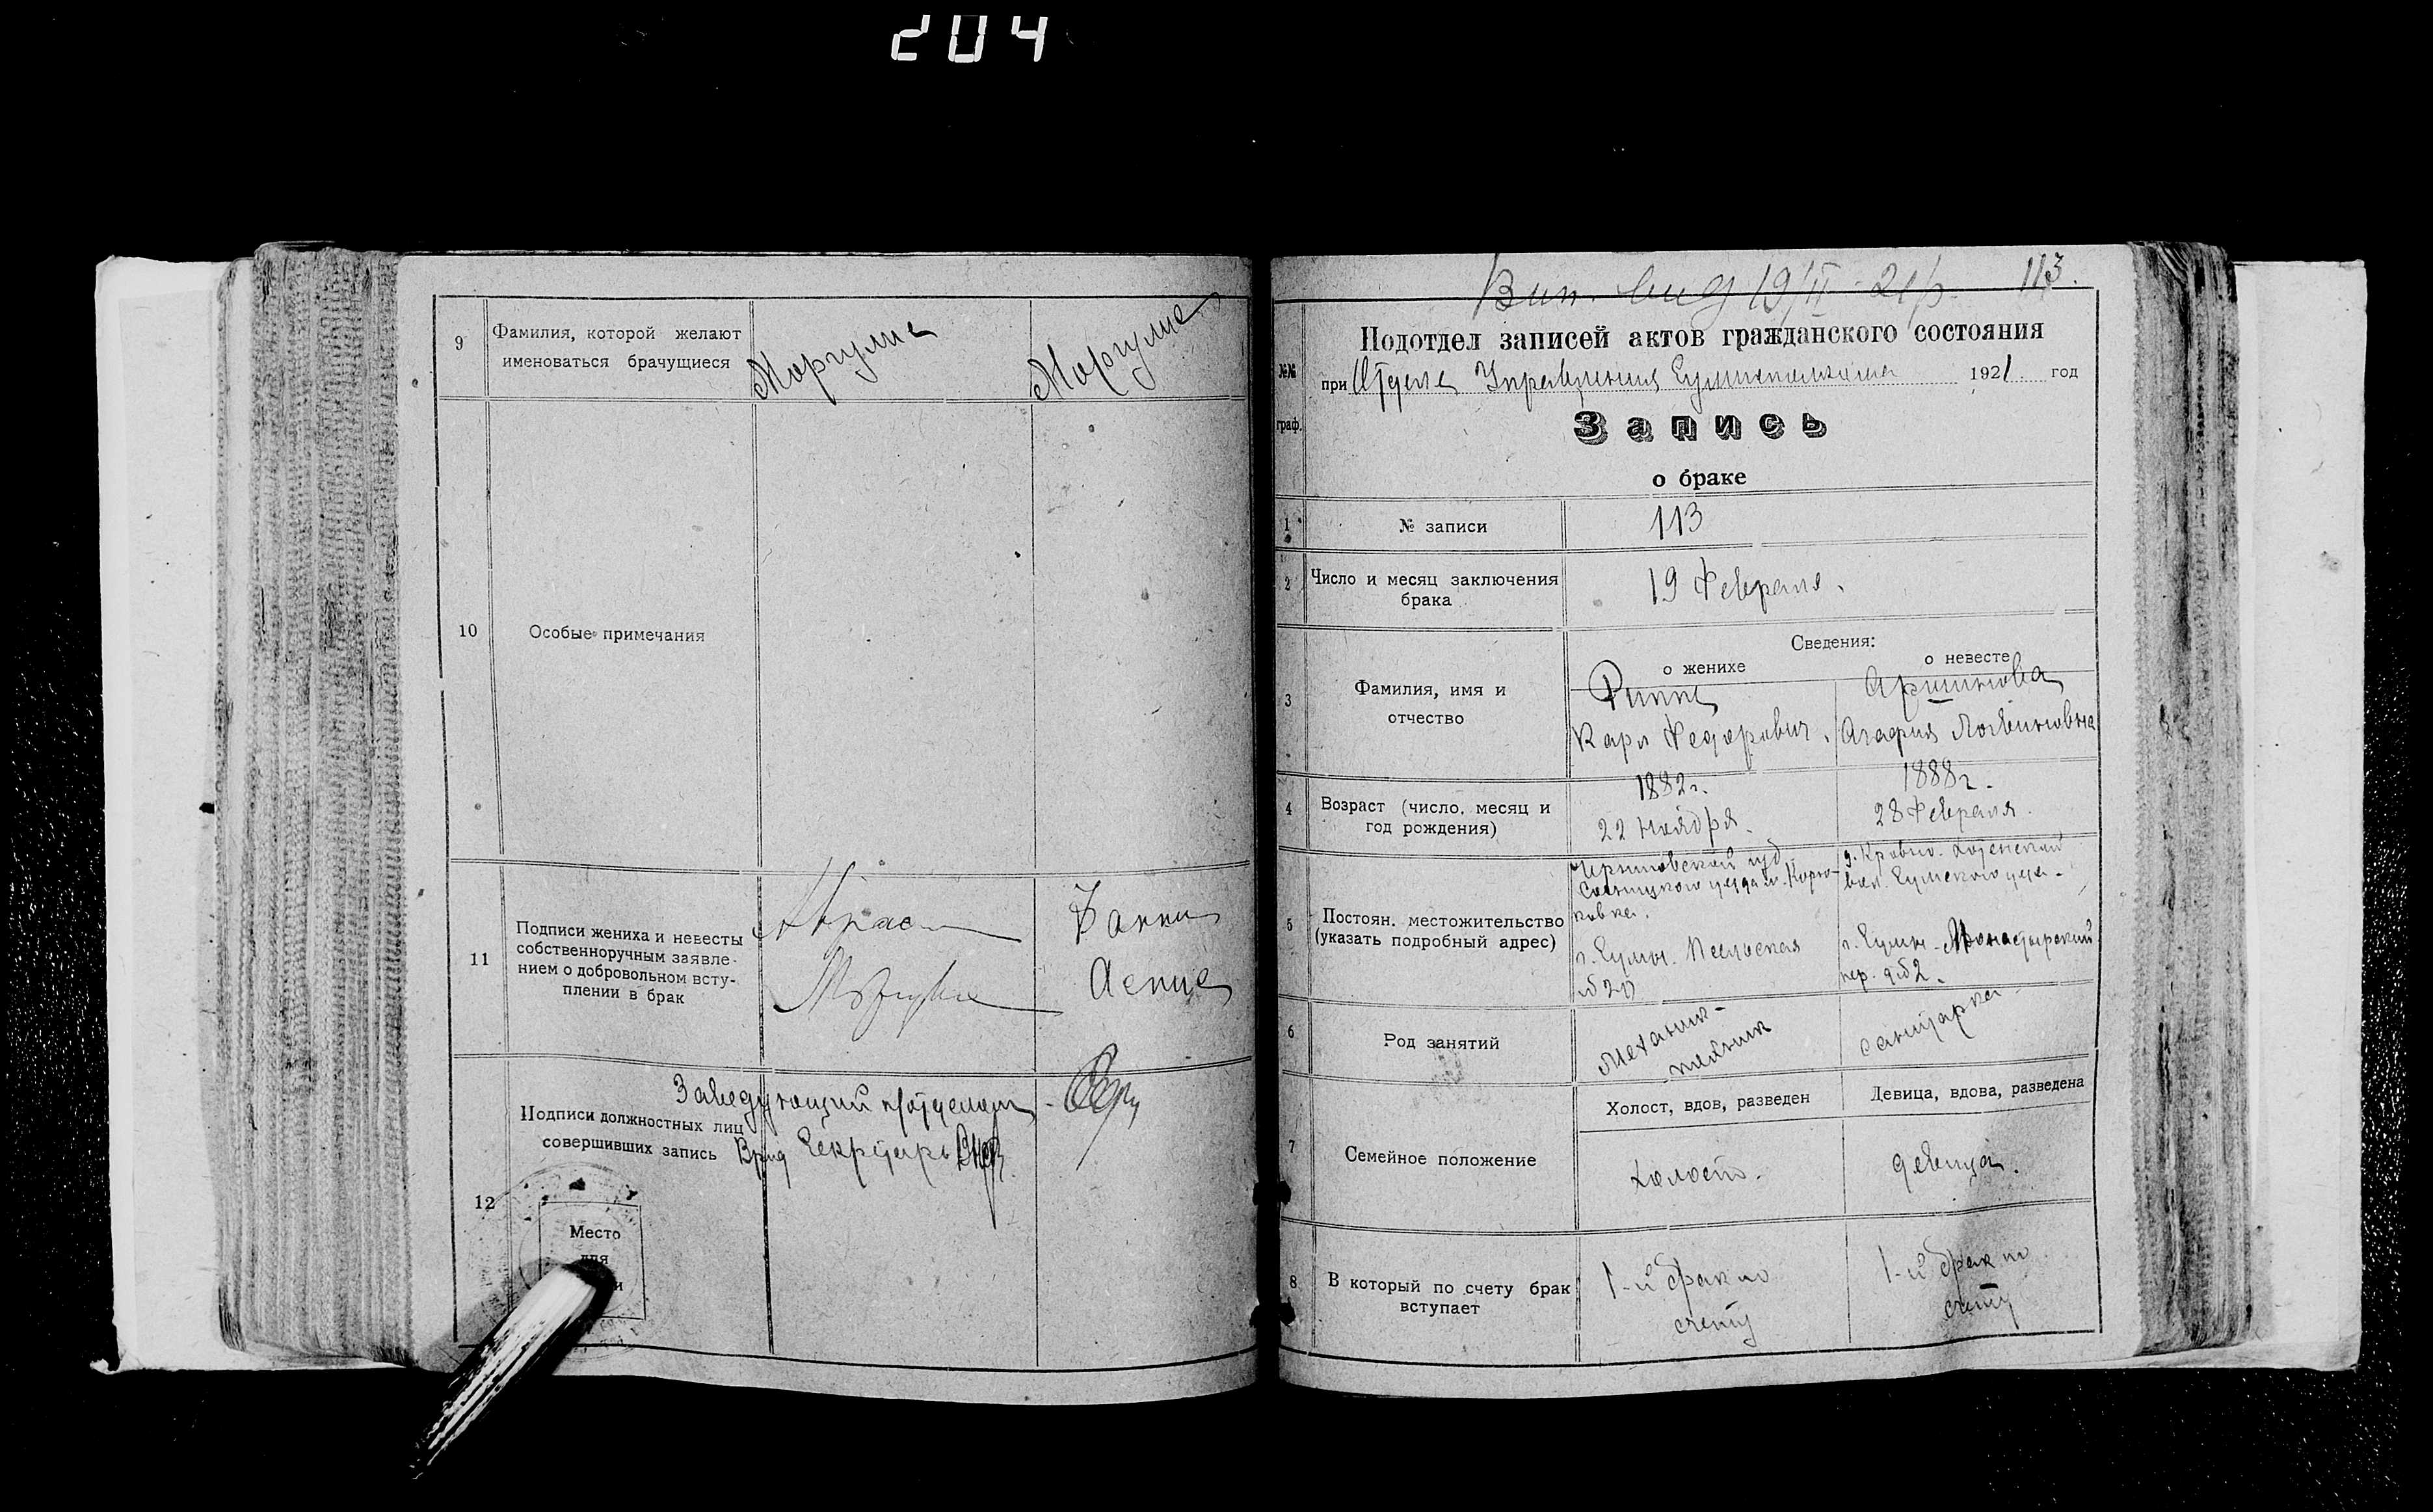 204
9
Фамилия, которой желают
именоваться брачущиеся
Моргулис
Моргулис
10
Особые примечания
11
Подписи жениха и невесты
собственноручным заявле-
нием о добровольном всту-
плении в брак
Фанни
Заведующий п/отделом
Подписи должностных лиц
совершивших запись
Врид Секретарь
12
Место
для
и
Вып. 19/II - 21 р. 113.
№№
граф.
Подотдел записей актов гражданского состояния
при Отделе Управления 1921 год
Запись
о браке
1
№ записи
113
2
Число и месяц заключения
брака
19 Февраля.
Сведения:
о женихе
о невесте
3
Фамилия, имя и
отчество
Риппе
Карл Федорович.
Аршинова
Агафия Логвиновна
4
Возраст (число, месяц и
год рождения)
1882 г.
22 Ноября.
1888 г.
28 Февраля.
5
Постоян. местожительство
(указать подробный адрес)
Черниговской губ.
Сосницкого уезда м. Корю-
ковка.
г. Сумы. Псельская
вол. Сумского уез.
г. Сумы - Монастырский
пер. д. № 2.
6
Род занятий
механик-
санитарка
7
Семейное положение
Холост, вдов, разведен
Девица, вдова, разведена
холост.
девица.
8
В который по счету брак
вступает
1-й брак по
счету
1-й брак по
счету